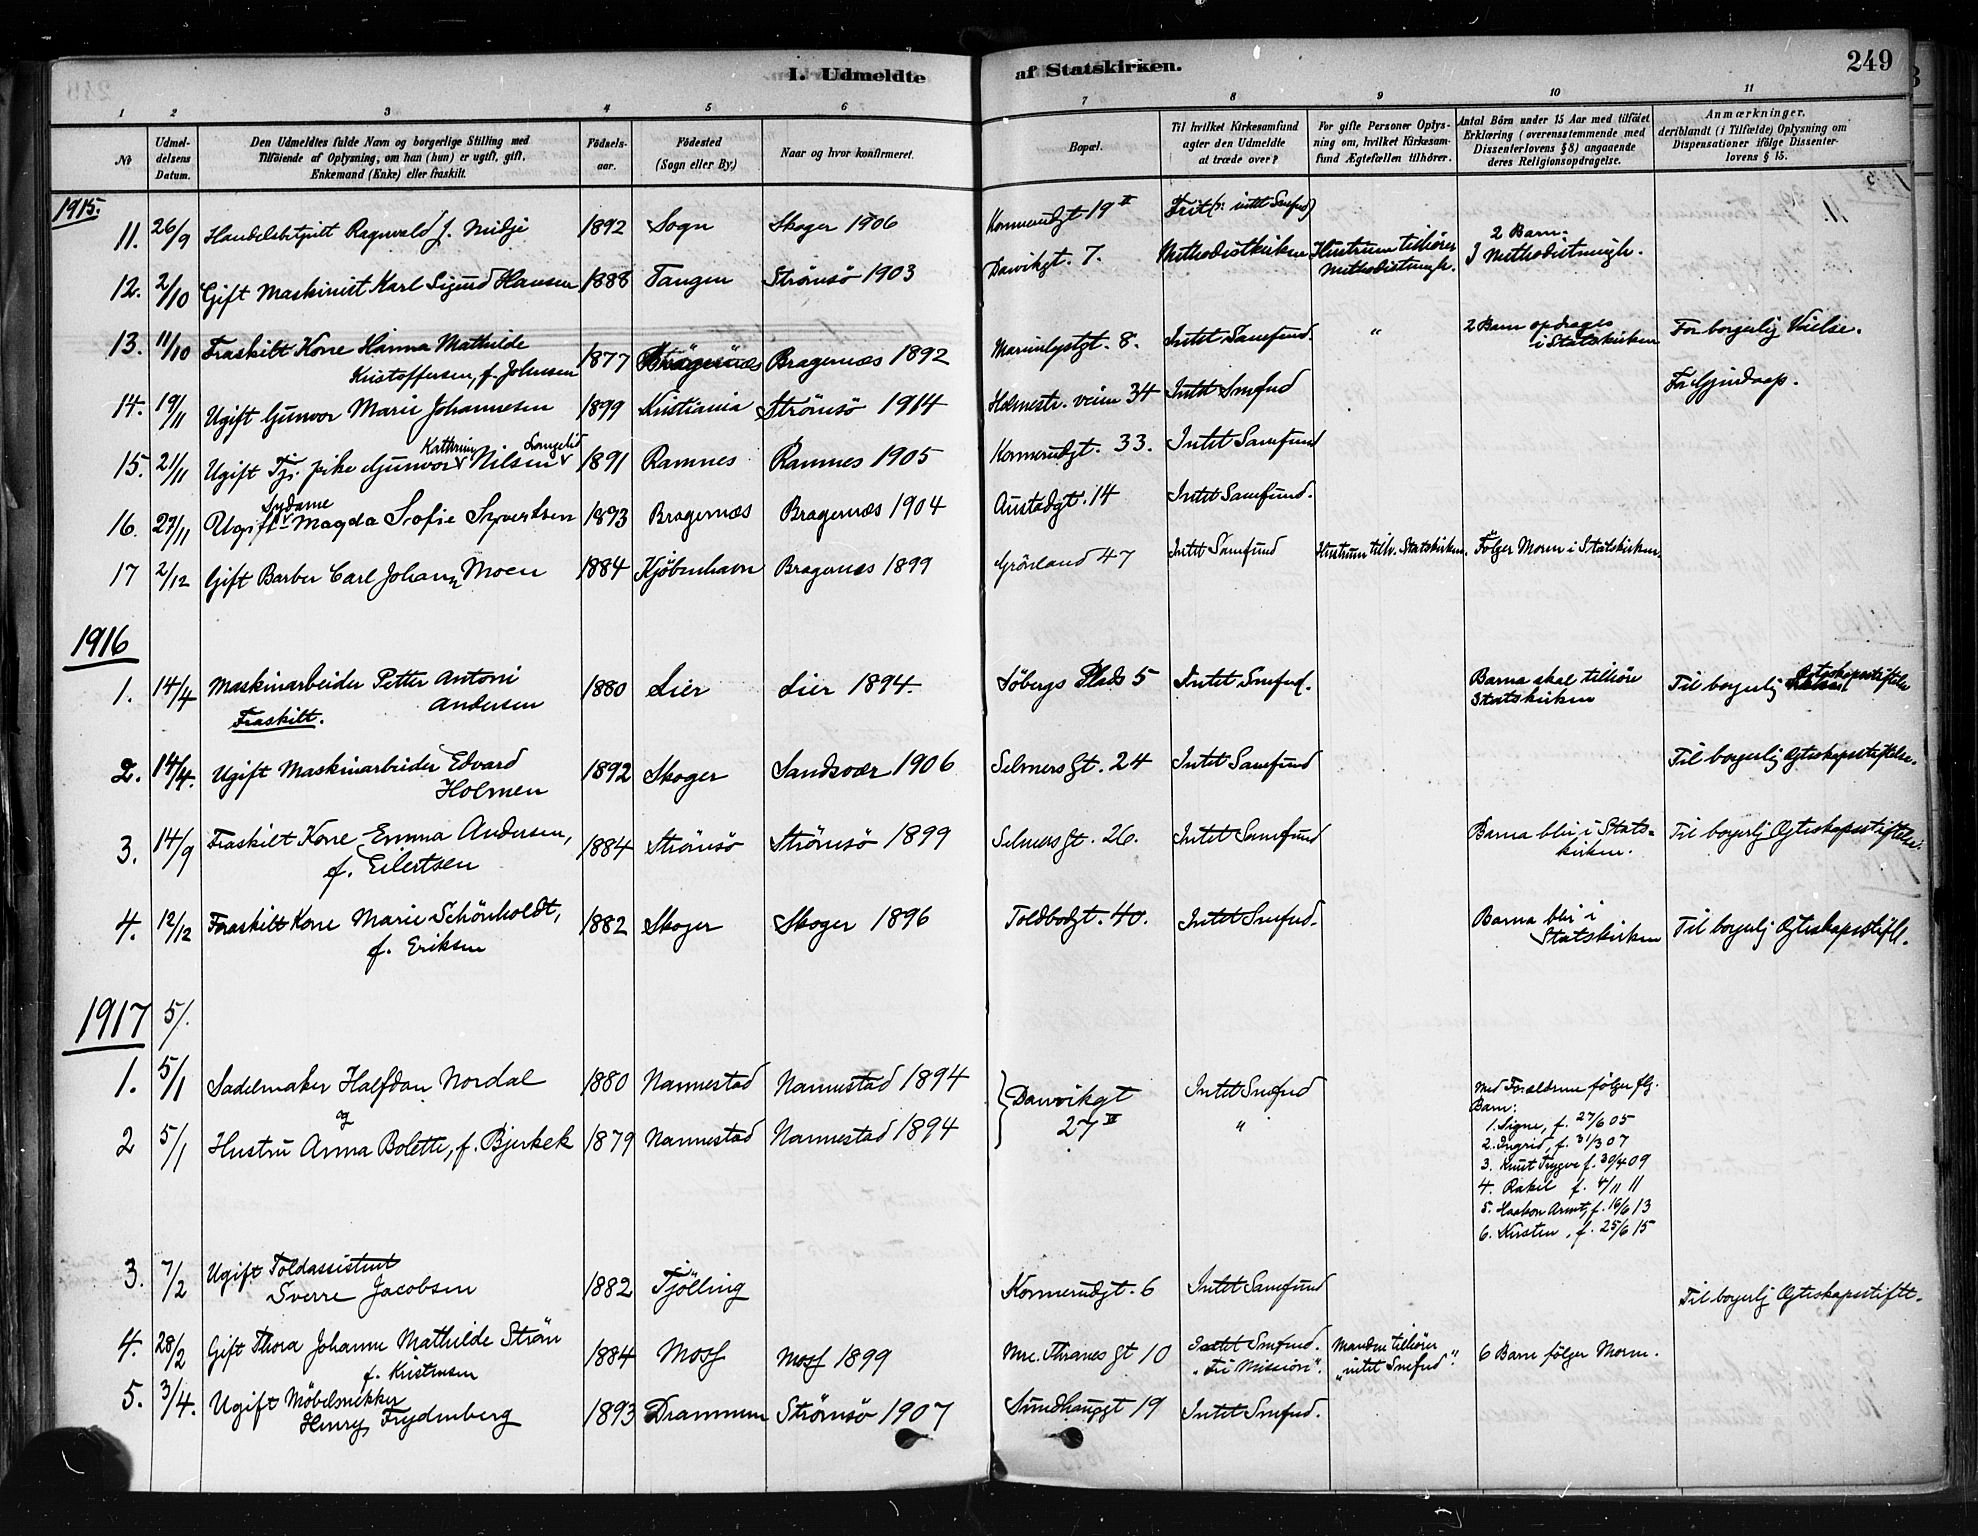 I. Udmeldte af Statskirken. 249
1 2 3 4 5 6 7 8 9 10 11
No
Udmeldelsens Datum.
Den Udmeldtes fulde Navn og borgerlige Stilling med
Tilføiende af Oplysning, om han (hun) er ugift, gift,
Enkemand (Enke) eller fraskilt.
Fødselsaar.
Fødested
(Sogn eller By.)
Naar og hvor konfirmeret.
Bopæl.
Til hvilket Kirkesamfund
agter den Udmeldte
at træde over?
For gifte Personer Oplys-
ning om, hvilket Kirkesam-
fund Ægtefællen tilhører.
Antal Börn under 15 Aar med tilføiet
Erklæring (overensstemmende med
Dissenterlovens § 8) angaaende
deres Religionsopdragelse.
Anmærkninger,
deriblandt (i Tilfælde) Oplysning om
Dispensationer ifölge Dissenter-
lovens § 15.
1915.
11. 26/9 Ragnvald J. Midje 1892 Sogn Skoger 1906 Konnerudgt 19 II Frit (ɔ: intet Smfnd)
12. 2/10 Gift Maskinist Karl Sigurd Hansen 1888 Tangen Strömsö 1903 Danvikgt. 7. Methodistkirken Hustruen tilhører Methodistmgh. 2 Barn i Methodistmgh.
13. 11/10 Fraskilt Kone Hanna Mathilde
Kristoffersen, f. Johnsen 1877 Bragernæs Bragernæs 1892 Marienlystgt. 8. Intet Samfund. " 2 Barn opdrages i Statskirken For borgerlig Vielse.
14. 19/11 Ugift Gunvor Marie Johannesen 1899 Kristiania Strömsö 1914 Holmestr. veien 34 Intet Smfnd
15. 21/11 Ugift Tj. pike Gunvor Kathrine Nilsen 1891 Ramnes Ramnes 1905 Konnerudgt. 33. Intet Samfund
16. 27/11 Ugift Sydame Magda Sofie Syvertsen 1893 Bragernæs Bragernæs 1904 Austadgt. 14 Intet Samfund.
17 2/12 Gift Barber Carl Johan Moen 1884 Kjöbenhavn Bragernæs 1899 Grönland 47 Intet Samfund Hustruen tilh. Statskirken. Følger Moren i Statskirken.
1916
1. 14/4 Maskinarbeider Petter Antoni
Andersen
Fraskilt. 1880 Lier Lier 1894. Söbergs Plads 5 Intet Smfnd. Barna skal tilhöre
Statskirken Til borgerlig Ægteskapsstiftelse
2. 14/4. Ugift Maskinarbeider Edvard
Holmen 1892 Skoger Sandsvær 1906 Selmersgt. 24 Intet Samfund Til borgerlig Ægteskapsstiftelse.
3. 14/9 Fraskilt Kone Emma Andersen,
f. Eilertsen 1884 Strömsö Strömsö 1899 Selmersgt. 26. Intet Samfund Barna blir i Stats-
kirken. Til borgerlig Ægteskapsstiftelse.
4. 12/12 Fraskilt Kone Marie Schönholdt,
f. Eriksen 1882 Skoger Skoger 1896 Toldbodgt. 40. Intet Smfnd. Barna blir i
Statskirken Til borgerlig Ægteskapsstiftl.
1917 5/.
1. 5/1 Sadelmaker Halfdan Nordal 1880 Nannestad Nannestad 1894 Danvikgt Intet Smfnd Med Forældrene følger flg.
og
2 5/1 Hustru Anna Bolette, f. Bjerkek 1879 Nannestad Nannestad 1894 27 II " Barn:
1. Signe, f. 27/6 05
2. Ingrid, f. 31/3 07
3. Knut Trygve f. 30/4 09
4. Rakel f. 4/11 11
5. Haakon Arnt, f. 16/6 13
6. Kirsten, f. 25/6 15
3. 7/2 Ugift Toldassistent
Sverre Jacobsen 1882 Tjölling Konnerudgt. 6 Intet Samfund Til borgerlig Ægteskapsstiftl.
4. 28/2 Gift Thora Johanne Mathilde Ström
f. Kristensen 1884 Moss Moss 1899 Mrc. Thranes gt 10 Intet Smfnd.
"Fri Mission". Manden tilhører
"intet Smfnd". 6 Barn følger Moren.
5. 3/4. Ugift Möbelsnekker
Henry Frydenberg 1893 Drammen Strömsö 1907 Sundhauggt 19 Intet Smfnd.